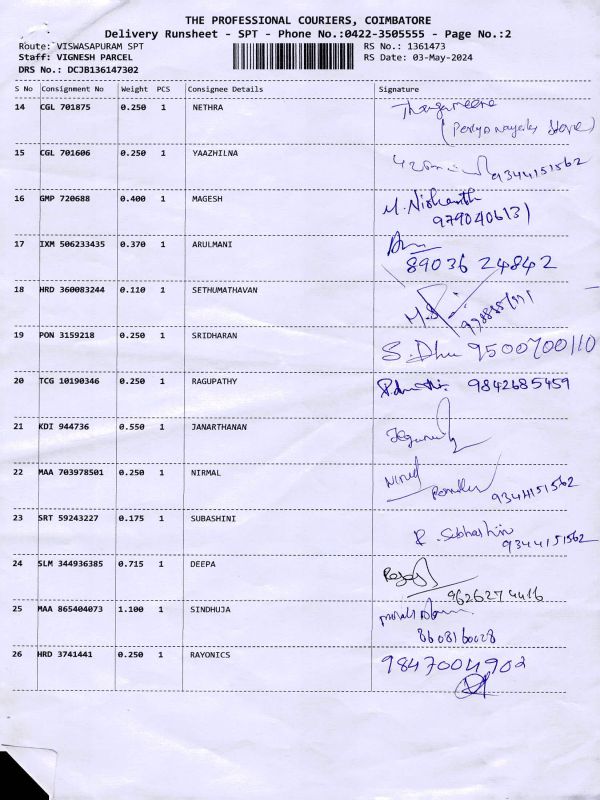 THE PROFESSIONAL COURIERS, COIMBATORE
Delivery Runsheet - SPT - Phone No.:0422-3505555 - Page No.:2
Route: VISWASAPURAM SPT
RS No.: 1361473
Staff: VIGNESH PARCEL
RS Date: 03-May-2024
DRS No.: DCJB136147302
S No Consignment No Weight PCS Consignee Details Signature
14 CGL 701875 0.250 1 NETHRA
Store)
15 CGL 701606 0.250 1 YAAZHILNA
9344151562
16 GMP 720688 0.400 1 MAGESH M. Nishanth
9790406131
17 IXM 506233435 0.370 1 ARULMANI
89036 24842
18 HRD 360083244 0.110 1 SETHUMATHAVAN
19 PON 3159218 0.250 1 SRIDHARAN S. Dhu 9500700110
20 TCG 10190346 0.250 1 RAGUPATHY 9842685459
21 KDI 944736 0.550 1 JANARTHANAN
22 MAA 703978501 0.250 1 NIRMAL
9344151562
23 SRT 59243227 0.175 1 SUBASHINI R. Subhashin
9344151562
24 SLM 344936385 0.715 1 DEEPA
9626274416
25 MAA 865404073 1.100 1 SINDHUJA
8608160028
26 HRD 3741441 0.250 1 RAYONICS 9847004902